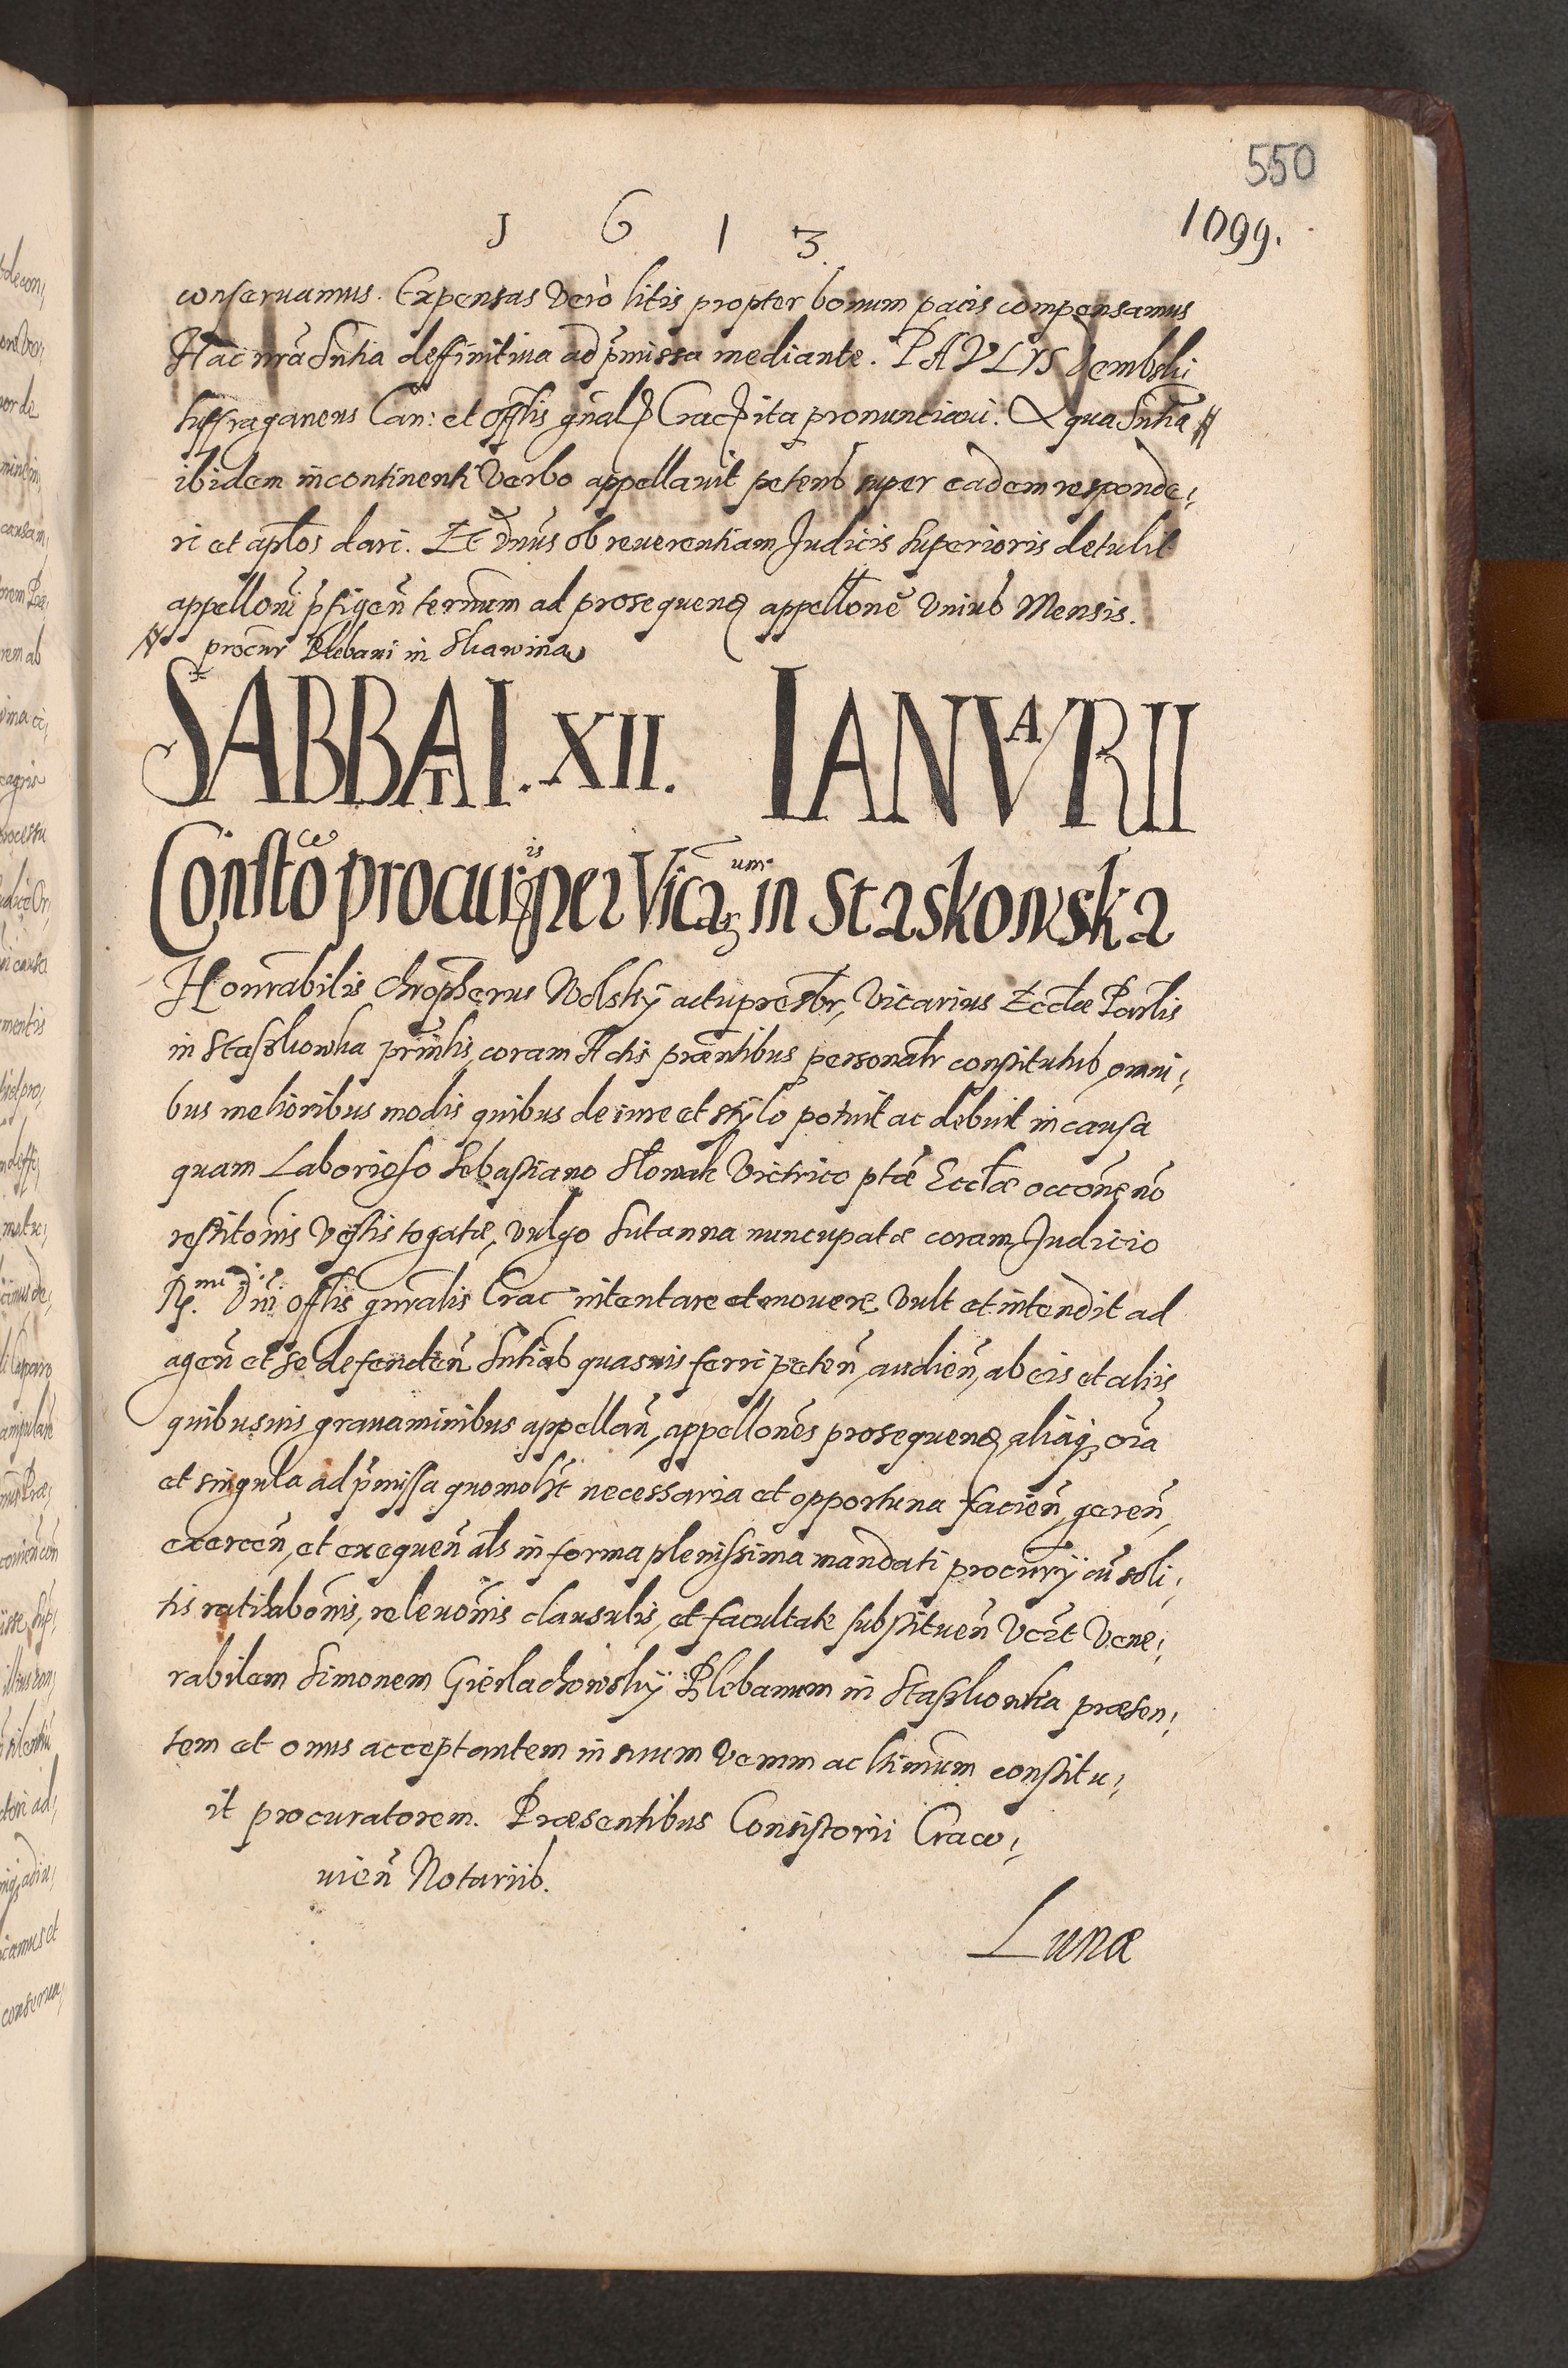 550
1613
1099.
conseruamus. Expensas verò litis propter bonum pacis compensamus
Hac nrã Sntia deffinitiua ad p̃missa mediante. PAVLVS Dembski
Suffraganeus Can: et offlis gñal Crac ita pronunciaui. A qua Sntia #
ibidem incontinenti Verbo appellauit petens super eadem responde,
ri et aptos dari. Et Dnus ob reuerentiam Judicis Superioris detulit
appelloni p̃figeñ termum ad prosequend appellone Vnius Mensis.
# procur Plebani in Skawina
SABBATI. XII. IANVARII
Constõ procuris per Vicarium in Staskowska
Honrabilis Chrophorus Wolskÿ actu presbr, Vicarius Eccłæ Parlis
in Staszkowka printis, coram Actis præntibus personalr constitutus, omni,
bus melioribus modis quibus de iure et stÿlo potuit ac debuit in causa
quam Laborioso Sebastiano Słowak Victrico ptæ Eccłæ occone nõ
restitonis Vestis togatæ, vulgo Sutanna nuncupatæ coram Judicio
R.mi Dni offlis gnralis Crac intentare et mouere vult et intendit ad
ageñ et se defendeñ Sntias quasuis ferri peteñ, audieñ, ab eis et aliis
quibusuis grauaminibus appellañ, appellones prosequend aliaq oia
et singula ad p̃missa quomolt necessaria et opportuna facieñ, gereñ,
exerceñ, et exequeñ als in forma plenissima mandati procurÿ cũ soli,
tis ratihabonis, releuonis clausulis, et facultate substitueñ Vert Vene,
rabilem Simonem Gierlachowskÿ Plebanum in Staszkowka præsen,
tem et onus acceptantem in suum verum ac ltimum constitu,
it procuratorem. Præsentibus Consistorii Craco,
uieñ Notariis.
Lunæ